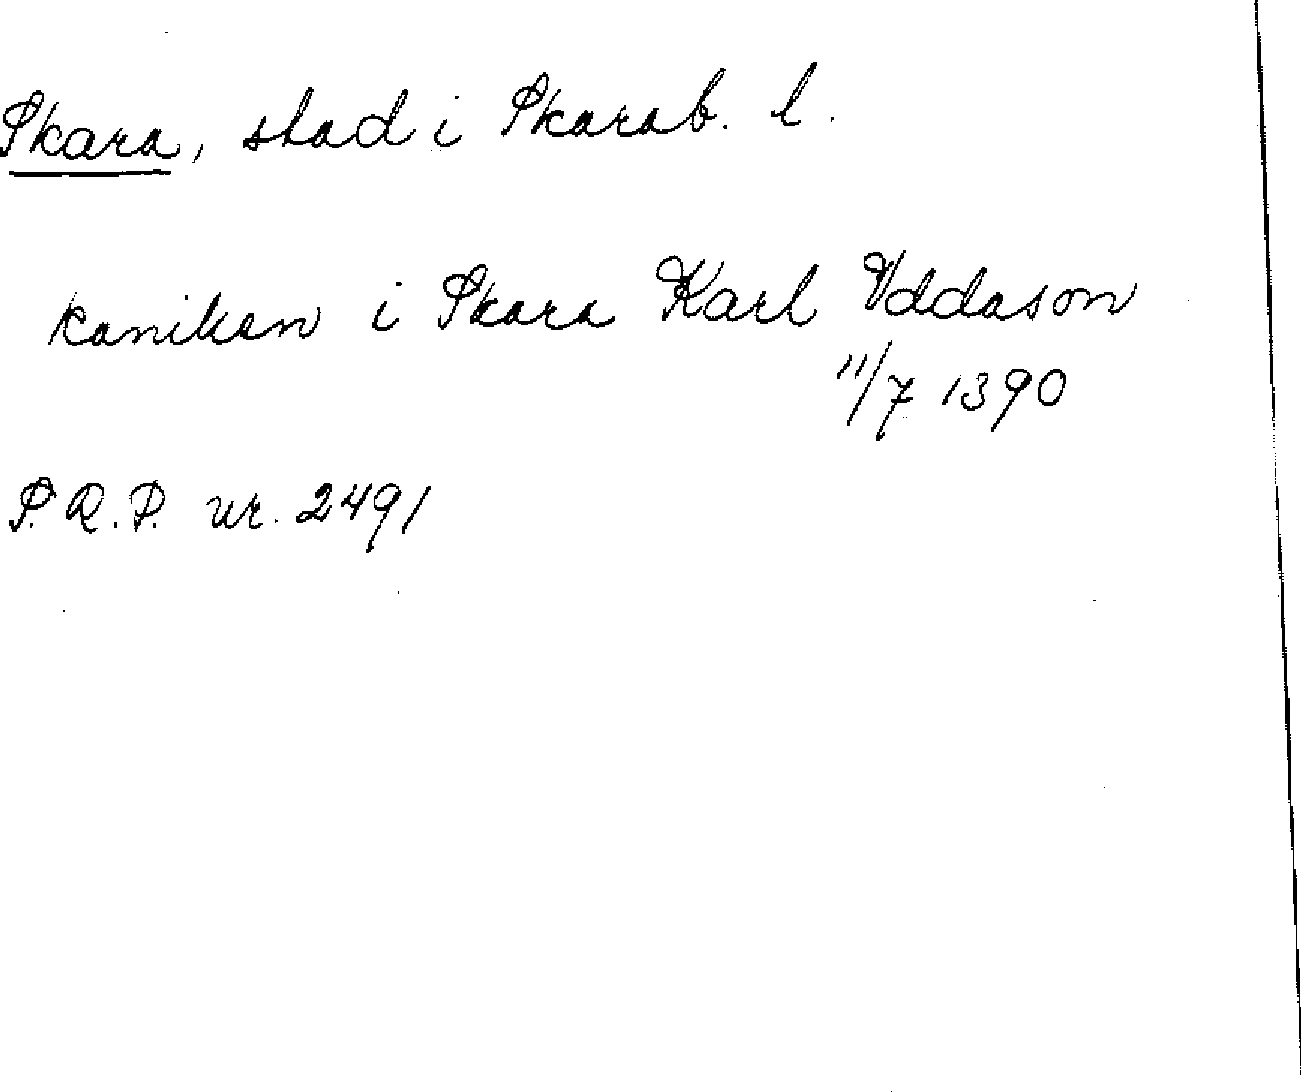 Skara, stad i Skarab. l.
kaniken i Skara Karl Uddason
11/7 1390
S.R.P. nr. 2491